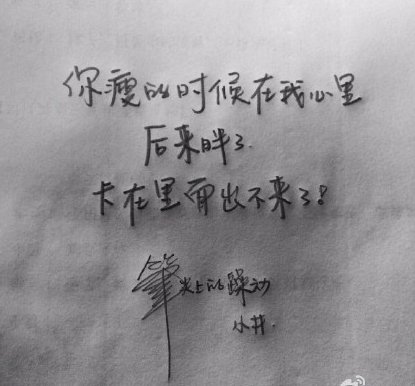 你瘦的时候在我心里
后来胖了.
卡在里面出不来了!
筆尖上的躁动
小井.